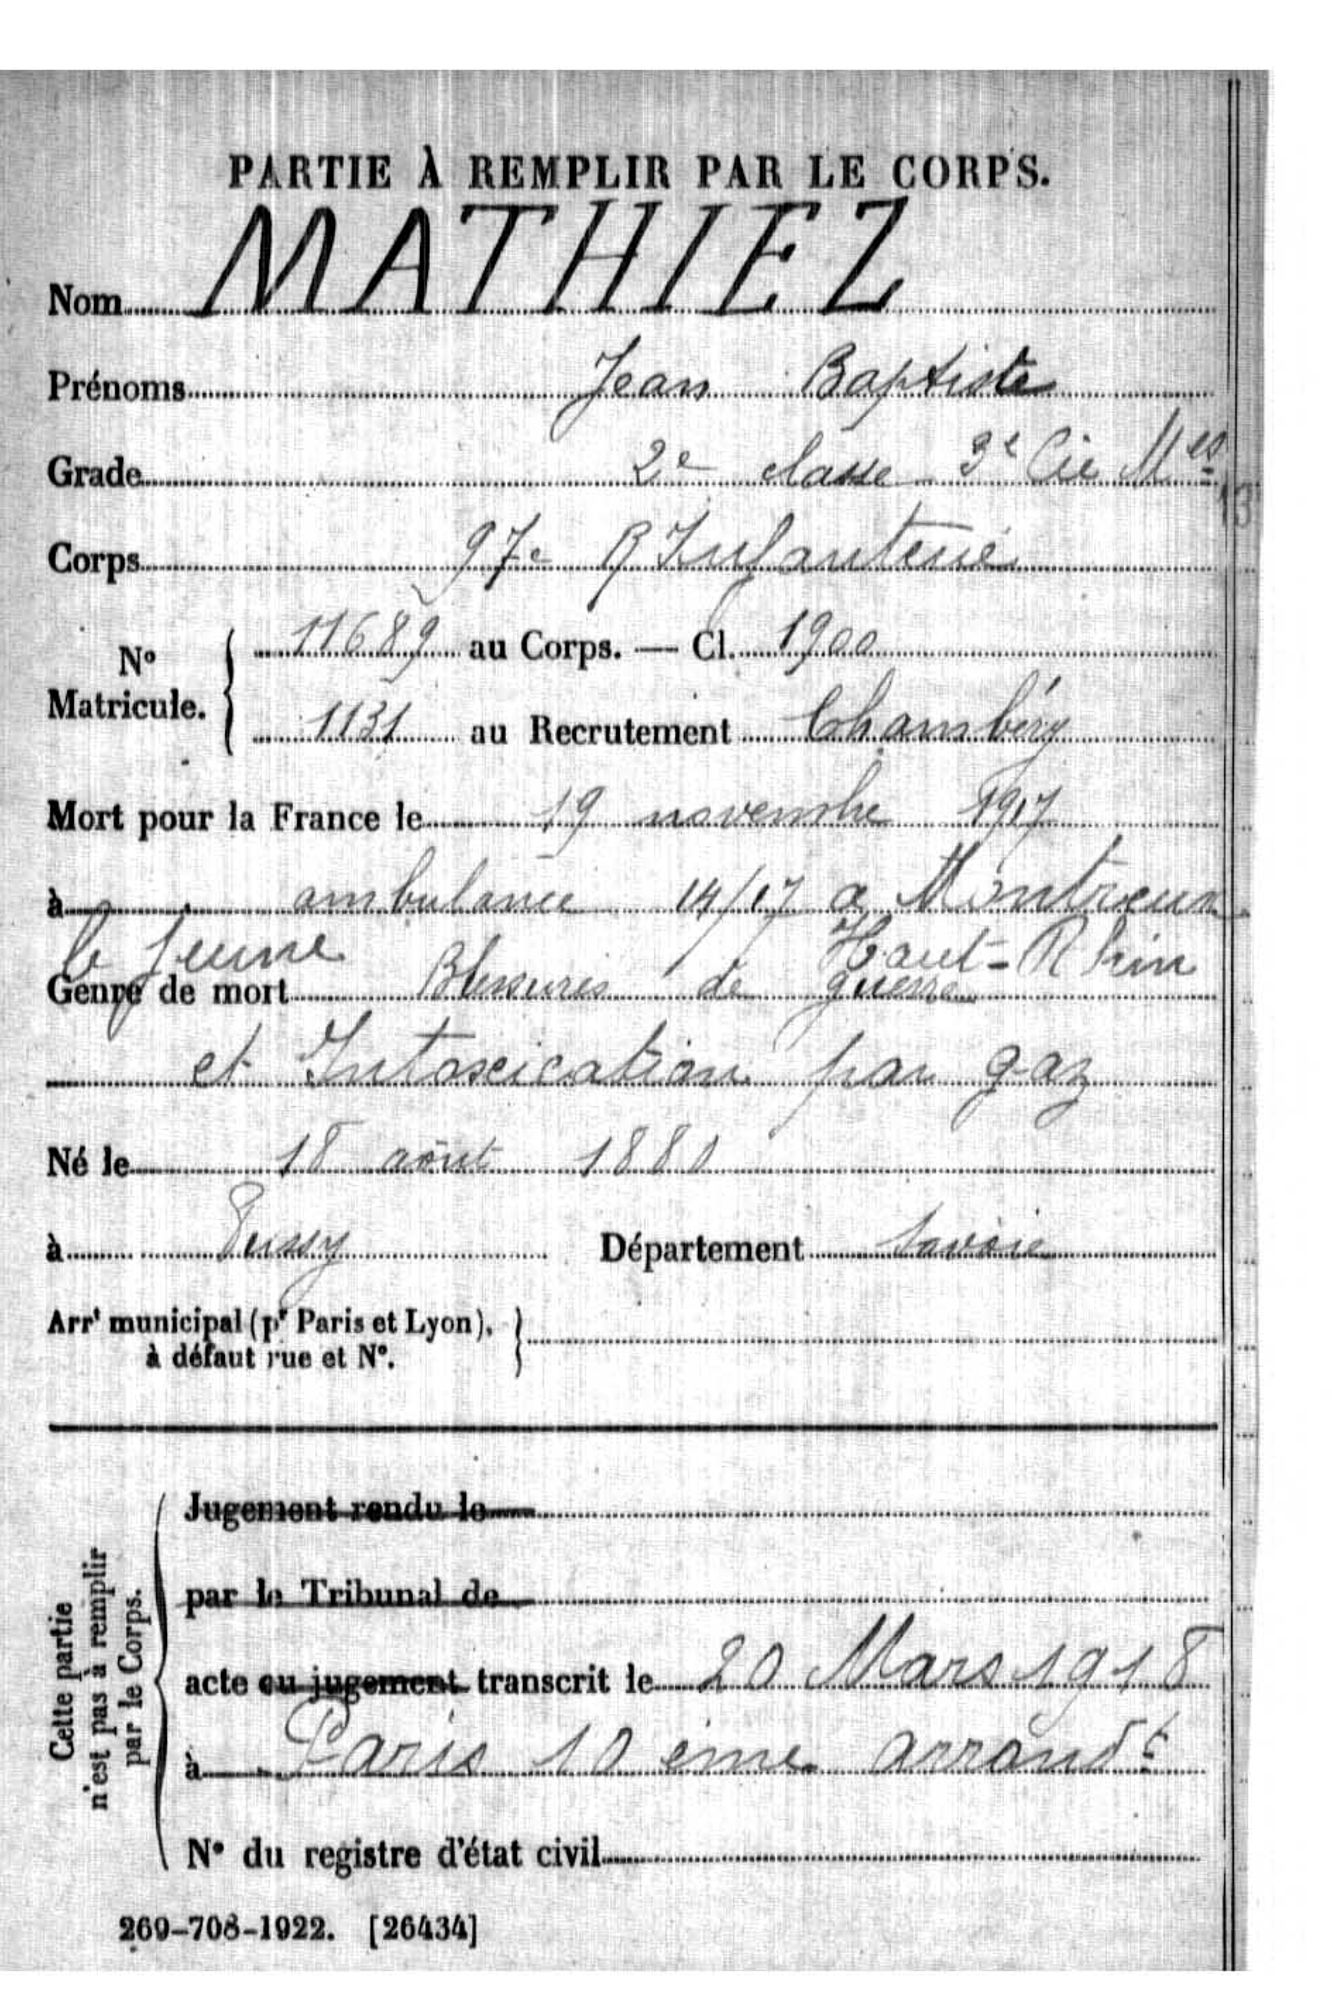 PARTIE À REMPLIR PAR LE CORPS.
Nom MATHIEZ
Prénoms Jean Baptiste
Grade 2e classe 3e Cie Mes
13
Corps 97e R Infanterie
No Matricule. 11689 au Corps. — Cl. 1900
1131 au Recrutement Chambéry
Mort pour la France le 19 novembre 1917
à ambulance 14/17 a Montreux
le jeune Haut-Rhin
Genre de mort Blessures de guerre
et Intoxication par gaz
Né le 18 août 1880
à Pussy Département Savoie
Arrt municipal (pr Paris et Lyon),
à défaut rue et N°.
Cette partie
n'est pas à remplir
par le Corps.
Jugement rendu le
par le Tribunal de
acte ou jugement transcrit le 20 Mars 1918
à Paris 10 ème arrondt
N° du registre d'état civil
269-708-1922. [26434]